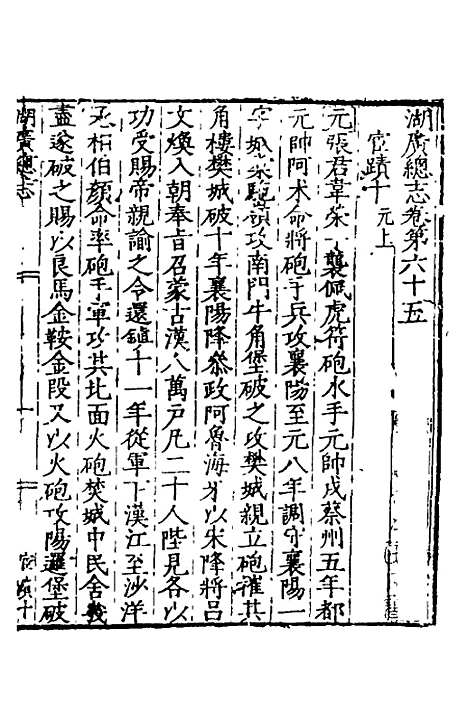 湖廣總志卷第六十五
宦蹟十 元上
元張君韋柔襲佩虎符砲水手元帥戍蔡州五年都
元帥阿术命將砲手兵攻襄陽至元八年調守襄陽一
字城柔驍領攻南門牛角堡破之攻樊城親立砲摧其
角樓樊城破十年襄陽降叅政阿魯海牙以宋降將呂
文煥入朝奉旨召蒙古漢人萬戶凡二十人陛見各以
功受賜帝親諭之令還鎮十一年從軍下漢江至沙洋
丞相伯顏命率砲手軍攻其北面火砲焚城中民舍幾
盡遂破之賜以良馬金鞍金段又以火砲攻陽邏堡破
湖廣總志
宦蹟十